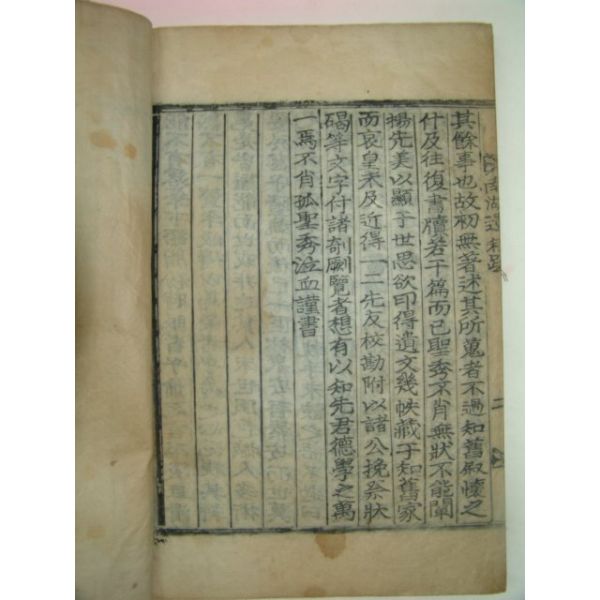 南湖遺稿跋
二
其餘事也故初無著述其所蒐者不過知舊叙懷之
什及往復書牘若干篇而已聖秀不肖無狀不能闡
揚先美以顯于世思欲印得遺文幾帙藏于知舊家
而哀皇未及近得一二先友校勘附以諸公挽祭狀
碣等文字付諸剞劂覽者想有以知先君德學之萬
一焉不肖孤聖秀泣血謹書